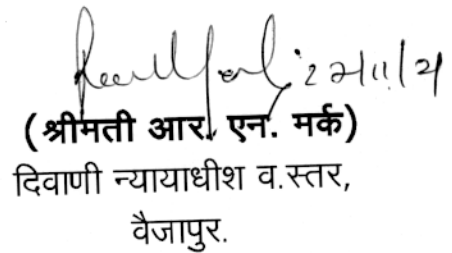 (श्रीमती आर. एन. मर्क)
दिवाणी न्यायाधीश व.स्तर,
वैजापुर.